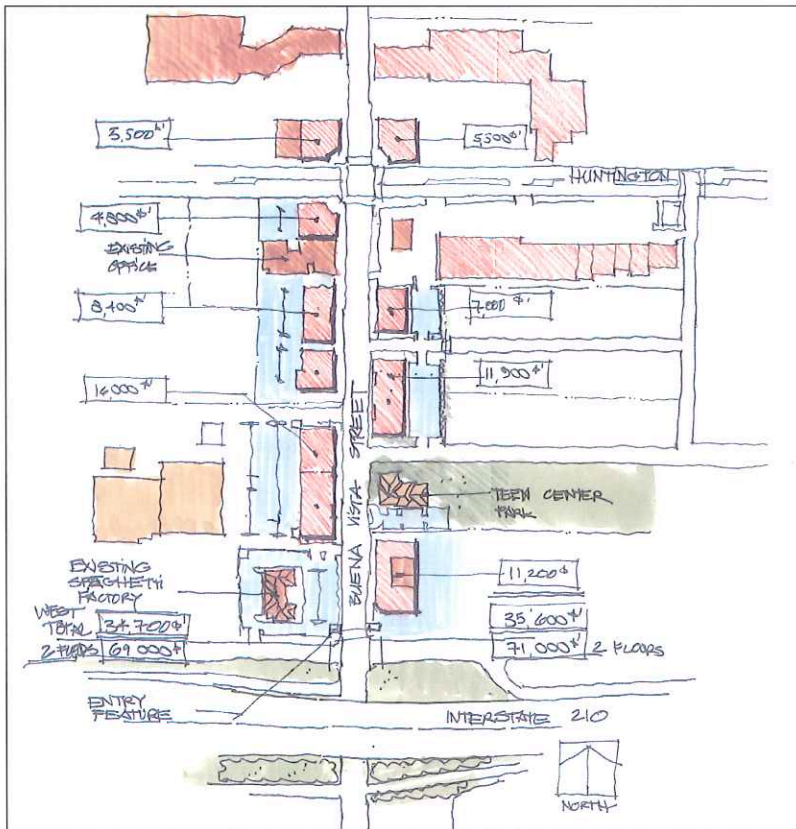 5,500 ⌀'
5,500 ⌀'
HUNTINGTON
4,800 ⌀'
EXISTING
OFFICE
8,400 ⌀'
7,000 ⌀'
11,900 ⌀'
16,000 ⌀'
BUENA VISTA STREET
TEEN CENTER
PARK
EXISTING
SPAGHETTI
FACTORY
11,200 ⌀'
WEST
TOTAL 34,700 ⌀'
35,600 ⌀'
2 FLOORS 69,000 ⌀'
71,000 ⌀' 2 FLOORS
ENTRY
FEATURE
INTERSTATE 210
NORTH